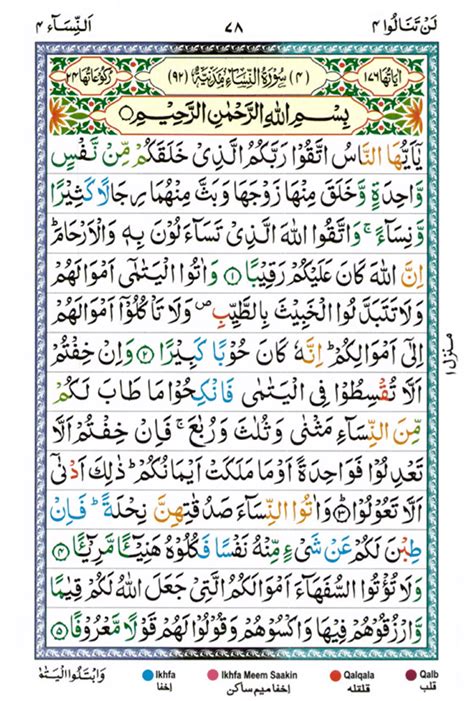 اَلنِّسَآء ٤ ٧٨ لَنْ تَنَالُوا ٤
اٰيَاتُهَا ١٧٦ (٤) سُوْرَةُ النِّسَآءِ مَدَنِيَّةٌ (٩٢) رُكُوْعَاتُهَا ٢٤
بِسْمِ اللّٰهِ الرَّحْمٰنِ الرَّحِيْمِ ○
يٰۤاَيُّهَا النَّاسُ اتَّقُوْا رَبَّكُمُ الَّذِىْ خَلَقَكُمْ مِّنْ نَّفْسٍ
وَّاحِدَةٍ وَّخَلَقَ مِنْهَا زَوْجَهَا وَبَثَّ مِنْهُمَا رِجَالًا كَثِيْرًا
وَّنِسَآءً ۚ وَاتَّقُوا اللّٰهَ الَّذِىْ تَسَآءَلُوْنَ بِهٖ وَالْاَرْحَامَ ؕ
اِنَّ اللّٰهَ كَانَ عَلَيْكُمْ رَقِيْبًا ۝١ وَاٰتُوا الْيَتٰمٰٓى اَمْوَالَهُمْ
وَلَا تَتَبَدَّلُوا الْخَبِيْثَ بِالطَّيِّبِ ۪ وَلَا تَاْكُلُوْۤا اَمْوَالَهُمْ
اِلٰٓى اَمْوَالِكُمْ ؕ اِنَّهٗ كَانَ حُوْبًا كَبِيْرًا ۝٢ وَاِنْ خِفْتُمْ
اَلَّا تُقْسِطُوْا فِى الْيَتٰمٰى فَانْكِحُوْا مَا طَابَ لَكُمْ
مِّنَ النِّسَآءِ مَثْنٰى وَثُلٰثَ وَرُبٰعَ ۚ فَاِنْ خِفْتُمْ اَلَّا
تَعْدِلُوْا فَوَاحِدَةً اَوْ مَا مَلَكَتْ اَيْمَانُكُمْ ؕ ذٰلِكَ اَدْنٰٓى
اَلَّا تَعُوْلُوْا ۝٣ وَاٰتُوا النِّسَآءَ صَدُقٰتِهِنَّ نِحْلَةً ؕ فَاِنْ
طِبْنَ لَكُمْ عَنْ شَىْءٍ مِّنْهُ نَفْسًا فَكُلُوْهُ هَنِيْٓـًٔا مَّرِيْٓـًٔا ۝٤
وَلَا تُؤْتُوا السُّفَهَآءَ اَمْوَالَكُمُ الَّتِىْ جَعَلَ اللّٰهُ لَكُمْ قِيٰمًا
وَّارْزُقُوْهُمْ فِيْهَا وَاكْسُوْهُمْ وَقُوْلُوْا لَهُمْ قَوْلًا مَّعْرُوْفًا ۝٥
منزل ١
وَابْتَلُوا الْيَتٰمٰى
Ikhfa Ikhfa Meem Saakin Qalqala Qalb
اخفا اخفا میم ساکن قلقله قلب